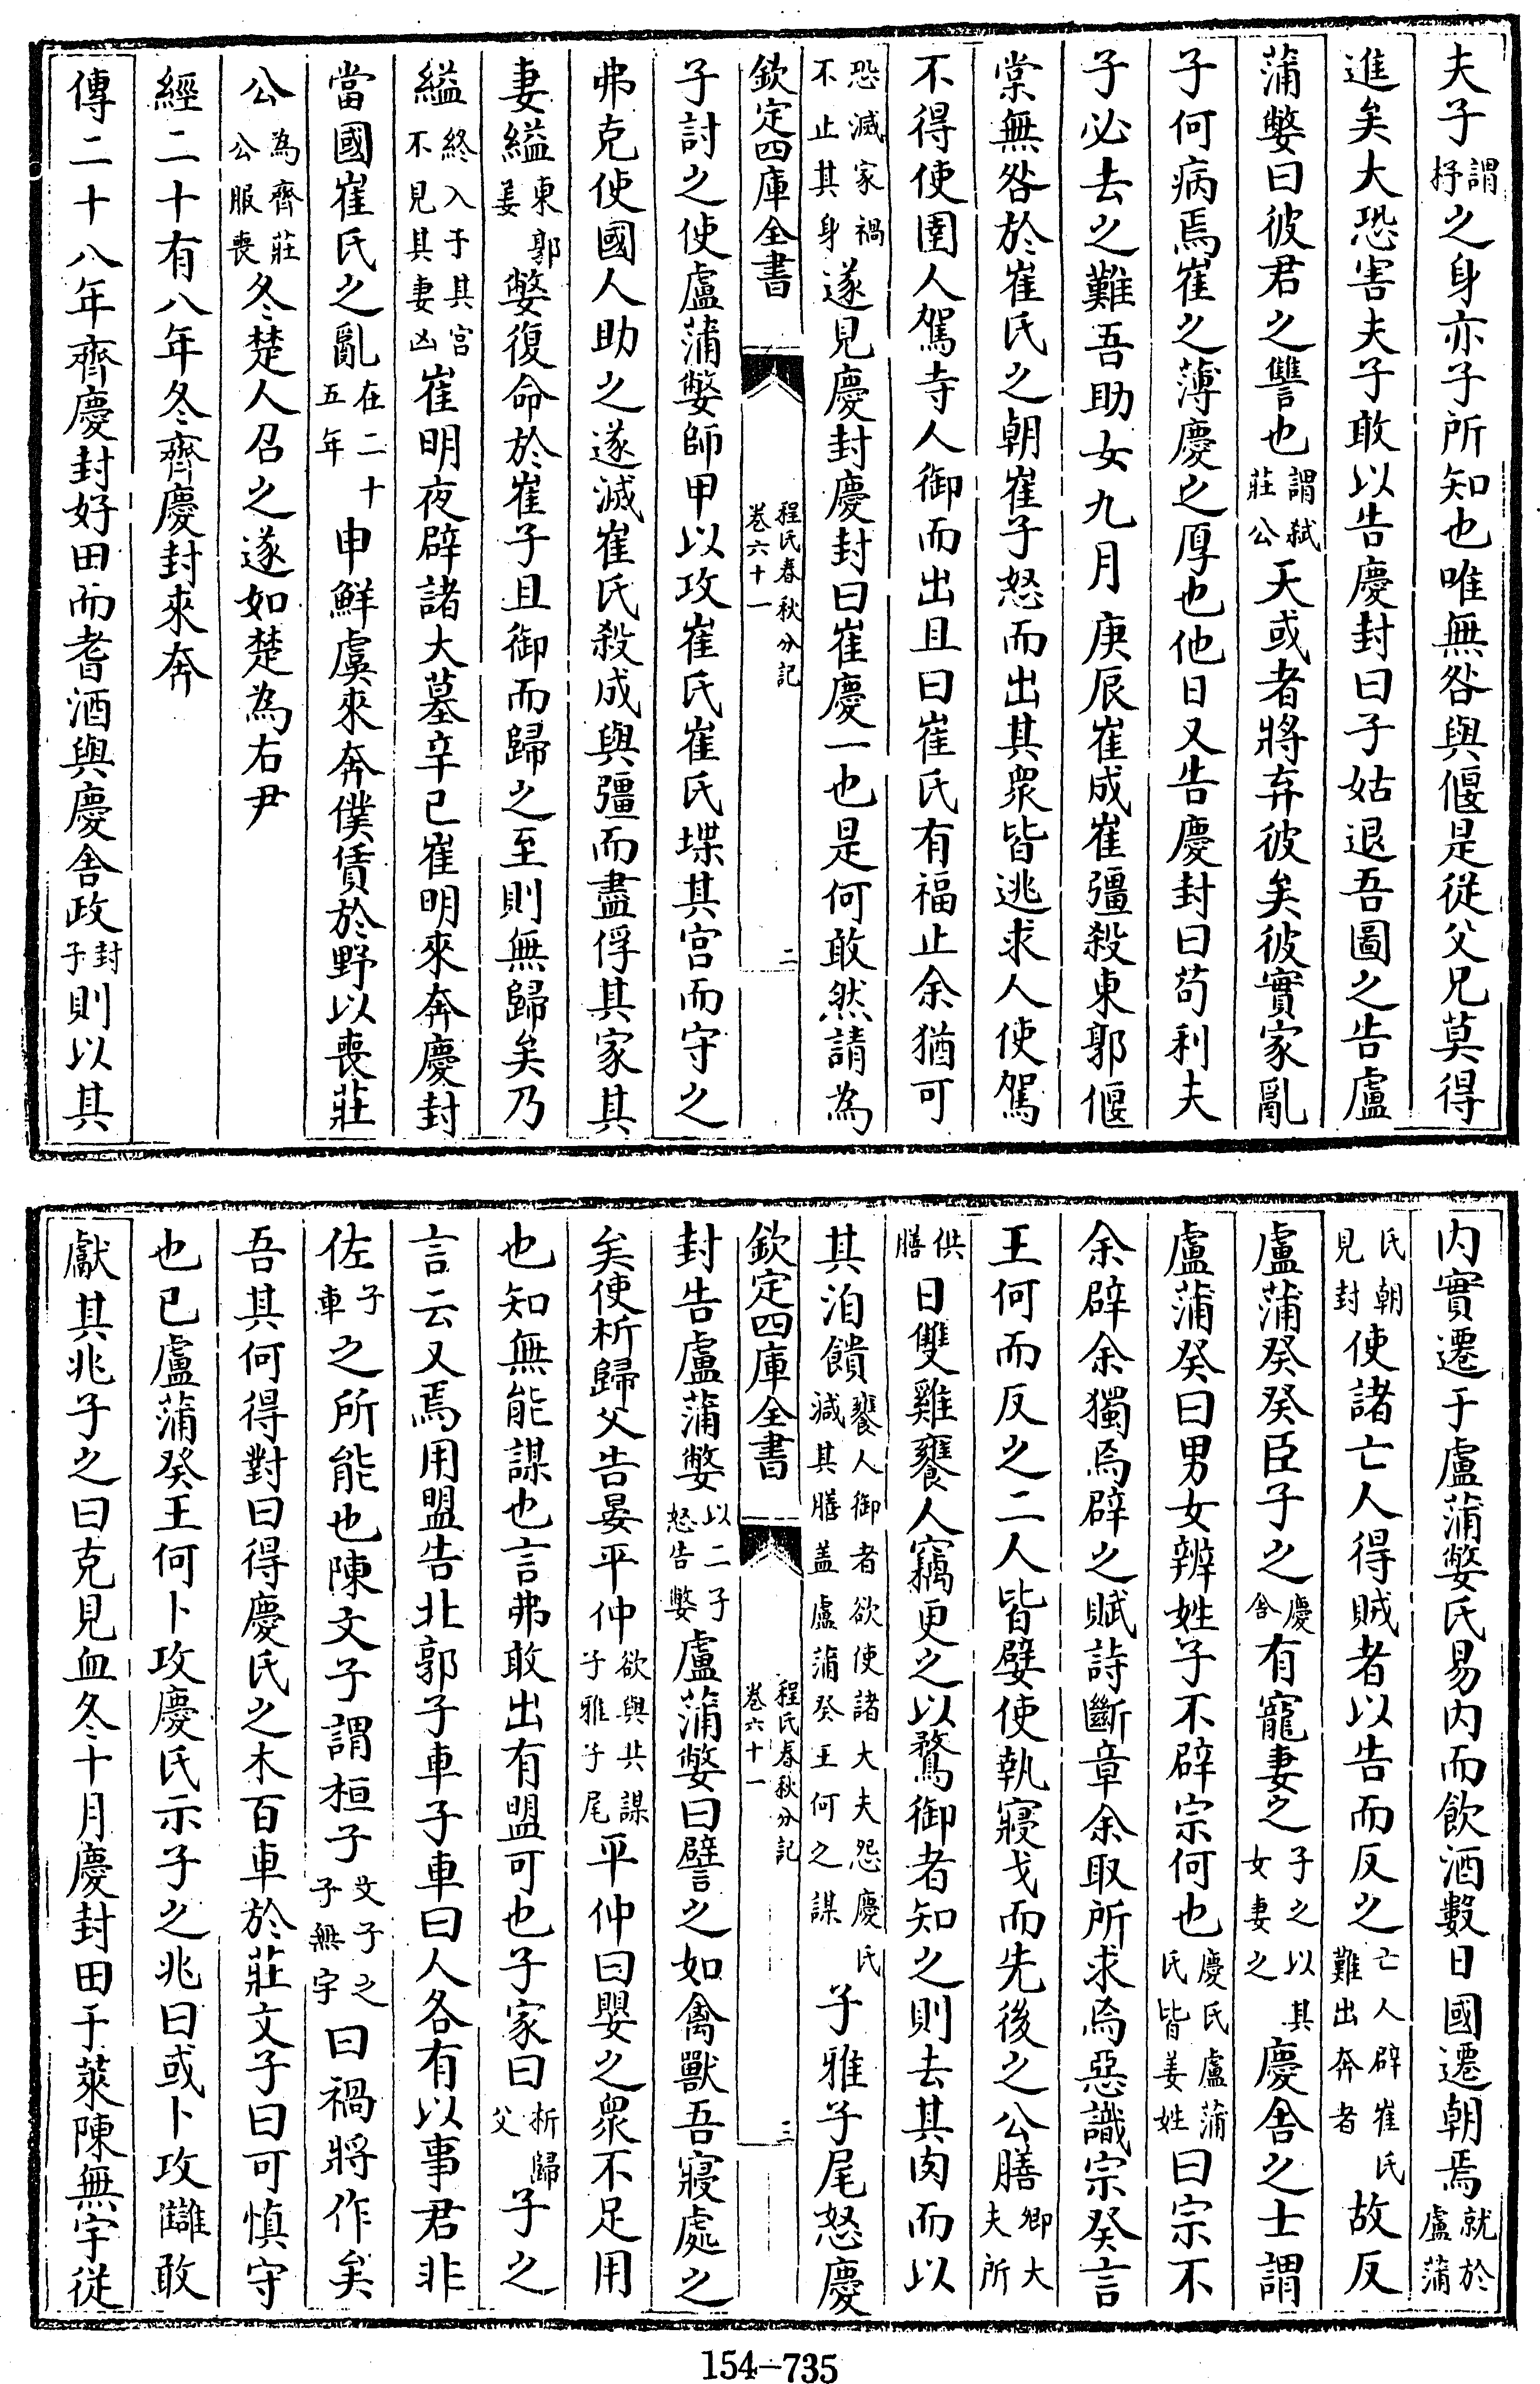 夫子謂杼之身亦子所知也唯無咎與偃是從父兄莫得
進矣大恐害夫子敢以告慶封曰子姑退吾圖之告盧
蒲嫳曰彼君之讐也謂弑莊公天或者將弃彼矣彼實家亂
子何病焉崔之薄慶之厚也他日又告慶封曰苟利夫
子必去之難吾助女九月庚辰崔成崔彊殺東郭偃
棠無咎於崔氏之朝崔子怒而出其衆皆逃求人使駕
不得使圉人駕寺人御而出且曰崔氏有福止余猶可
恐滅家禍不止其身遂見慶封慶封曰崔慶一也是何敢然請為
欽定四庫全書 程氏春秋分記卷六十一 二
子討之使盧蒲嫳師甲以攻崔氏崔氏堞其宫而守之
弗克使國人助之遂滅崔氏殺成與彊而盡俘其家其
妻縊東郭姜嫳復命於崔子且御而歸之至則無歸矣乃
縊終入于其宫不見其妻凶崔明夜辟諸大墓辛巳崔明來奔慶封
當國崔氏之亂在二十五年申鮮虞來奔僕賃於野以喪莊
公為齊莊公服喪冬楚人召之遂如楚為右尹
經二十有八年冬齊慶封來奔
傳二十八年齊慶封好田而耆酒與慶舍政封子則以其
内實遷于盧蒲嫳氏易内而飲酒數日國遷朝焉就於盧蒲
氏朝見封使諸亡人得賊者以告而反之亡人辟崔氏難出奔者故反
盧蒲癸癸臣子之慶舍有寵妻之子之以其女妻之慶舍之士謂
盧蒲癸曰男女辨姓子不辟宗何也慶氏盧蒲氏皆姜姓曰宗不
余辟余獨焉辟之賦詩斷章余取所求焉惡識宗癸言
王何而反之二人皆嬖使執寢戈而先後之公膳卿大夫所
供膳日雙雞饔人竊更之以鶩御者知之則去其肉而以
其洎饋饔人御者欲使諸大夫怨慶氏減其膳蓋盧蒲癸王何之謀子雅子尾怒慶
欽定四庫全書 程氏春秋分記卷六十一 三
封告盧蒲嫳以二子怒告嫳盧蒲嫳曰譬之如禽獸吾寢處之
矣使析歸父告晏平仲欲與共謀子雅子尾平仲曰嬰之衆不足用
也知無能謀也言弗敢出有盟可也子家曰析歸父子之
言云又焉用盟告北郭子車子車曰人各有以事君非
佐子車之所能也陳文子謂桓子文子之子無宇曰禍將作矣
吾其何得對曰得慶氏之木百車於莊文子曰可慎守
也已盧蒲癸王何卜攻慶氏示子之兆曰或卜攻讎敢
獻其兆子之曰克見血冬十月慶封田于萊陳無宇從
154-735